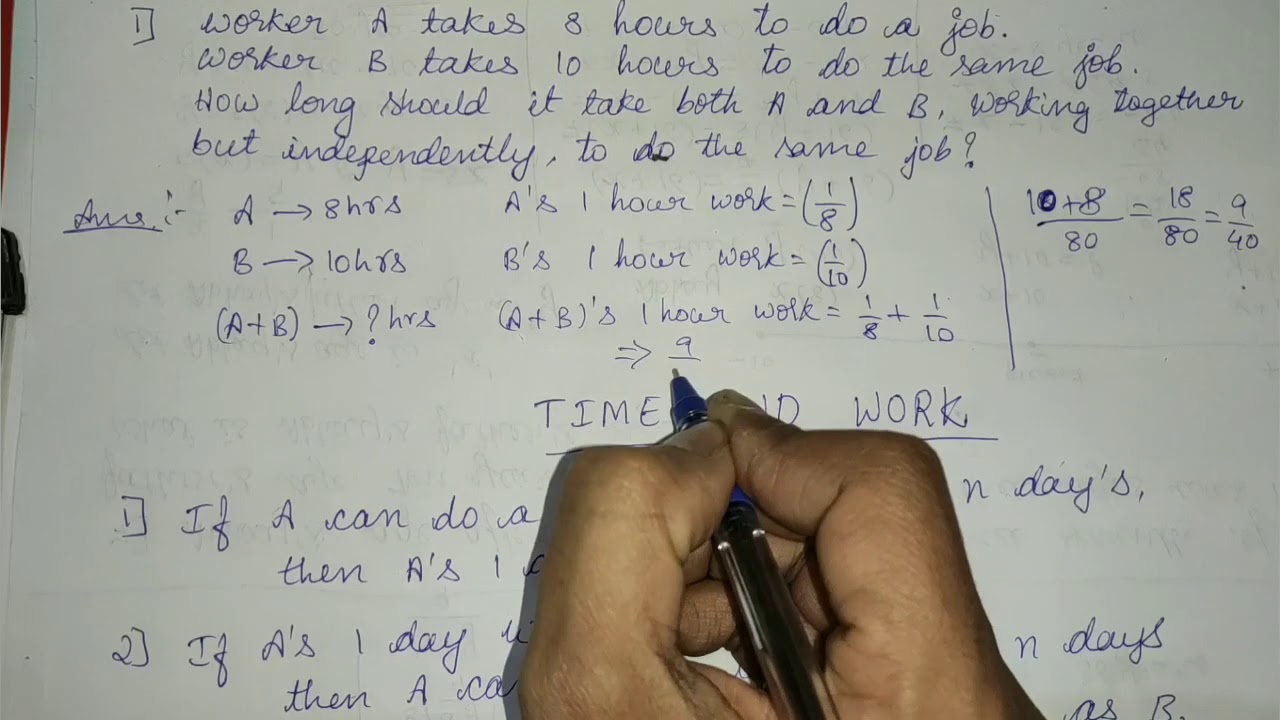 1] Worker A takes 8 hours to do a job.
Worker B takes 10 hours to do the same job.
How long should it take both A and B, working together
but independently, to do the same job?
Ans:- A → 8hrs A's 1 hour work = (1/8)
B → 10hrs B's 1 hour work = (1/10)
(A+B) → ? hrs (A+B)'s 1 hour work = 1/8 + 1/10
⇒ 9
10+8/80 = 18/80 = 9/40
TIME WORK
1] If A can do a n day's,
then A's 1
2] If A's 1 day n days
then A as B.